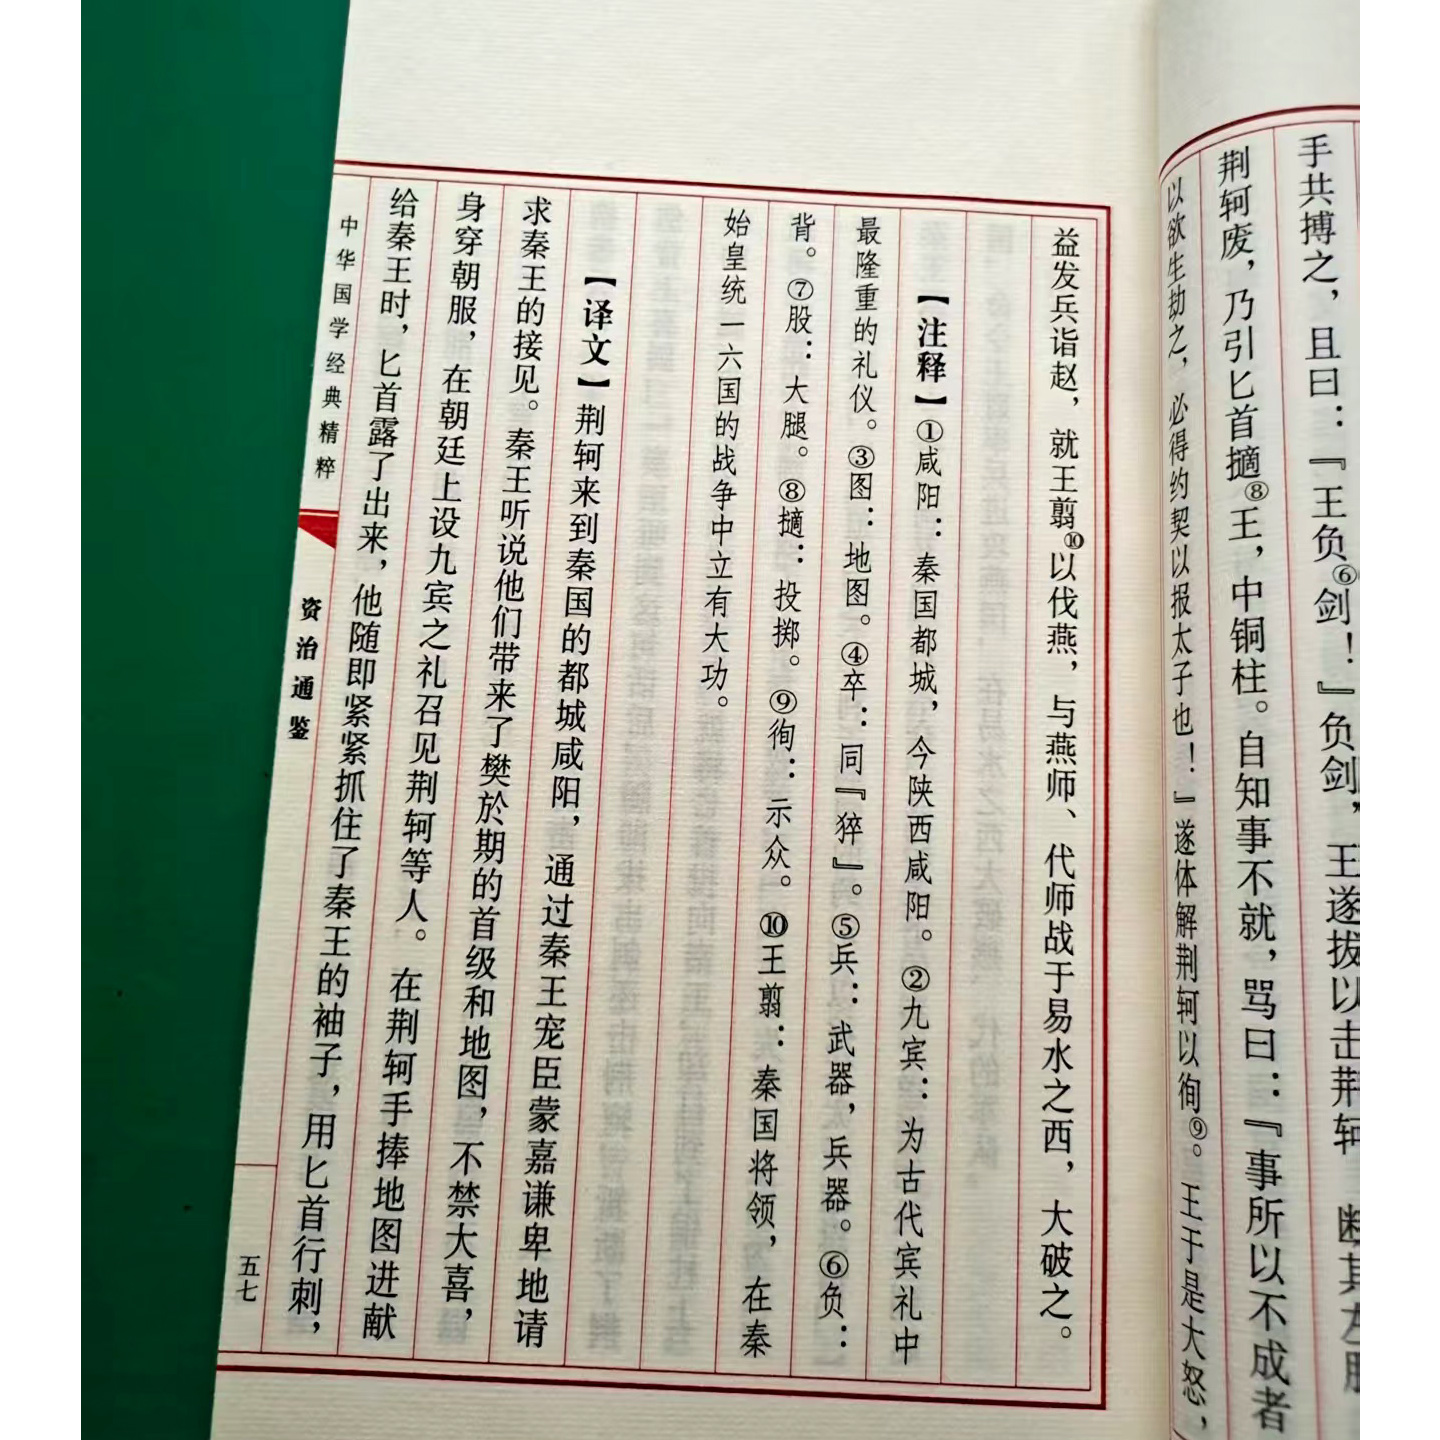 手共搏之，且曰：『王负⑥剑！』负剑，王遂拔以击荆轲，断其左股⑦
荆轲废，乃引匕首擿⑧王，中铜柱。自知事不就，骂曰：『事所以不成者
以欲生劫之，必得约契以报太子也！』遂体解荆轲以徇⑨。王于是大怒，
益发兵诣赵，就王翦⑩以伐燕，与燕师、代师战于易水之西，大破之。
【注释】①咸阳：秦国都城，今陕西咸阳。②九宾：为古代宾礼中
最隆重的礼仪。③图：地图。④卒：同『猝』。⑤兵：武器，兵器。⑥负：
背。⑦股：大腿。⑧擿：投掷。⑨徇：示众。⑩王翦：秦国将领，在秦
始皇统一六国的战争中立有大功。
【译文】荆轲来到秦国的都城咸阳，通过秦王宠臣蒙嘉谦卑地请
求秦王的接见。秦王听说他们带来了樊於期的首级和地图，不禁大喜，
身穿朝服，在朝廷上设九宾之礼召见荆轲等人。在荆轲手捧地图进献
给秦王时，匕首露了出来，他随即紧紧抓住了秦王的袖子，用匕首行刺，
中华国学经典精粹
资治通鉴
五七